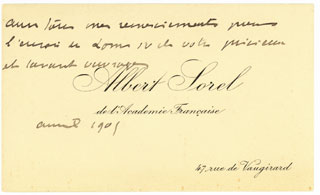 mes remerciements pour
l'envoi du tome IV de votre précieux
et savant ouvrage
Albert Sorel
de l'Académie Française
1905
47, rue de Vaugirard